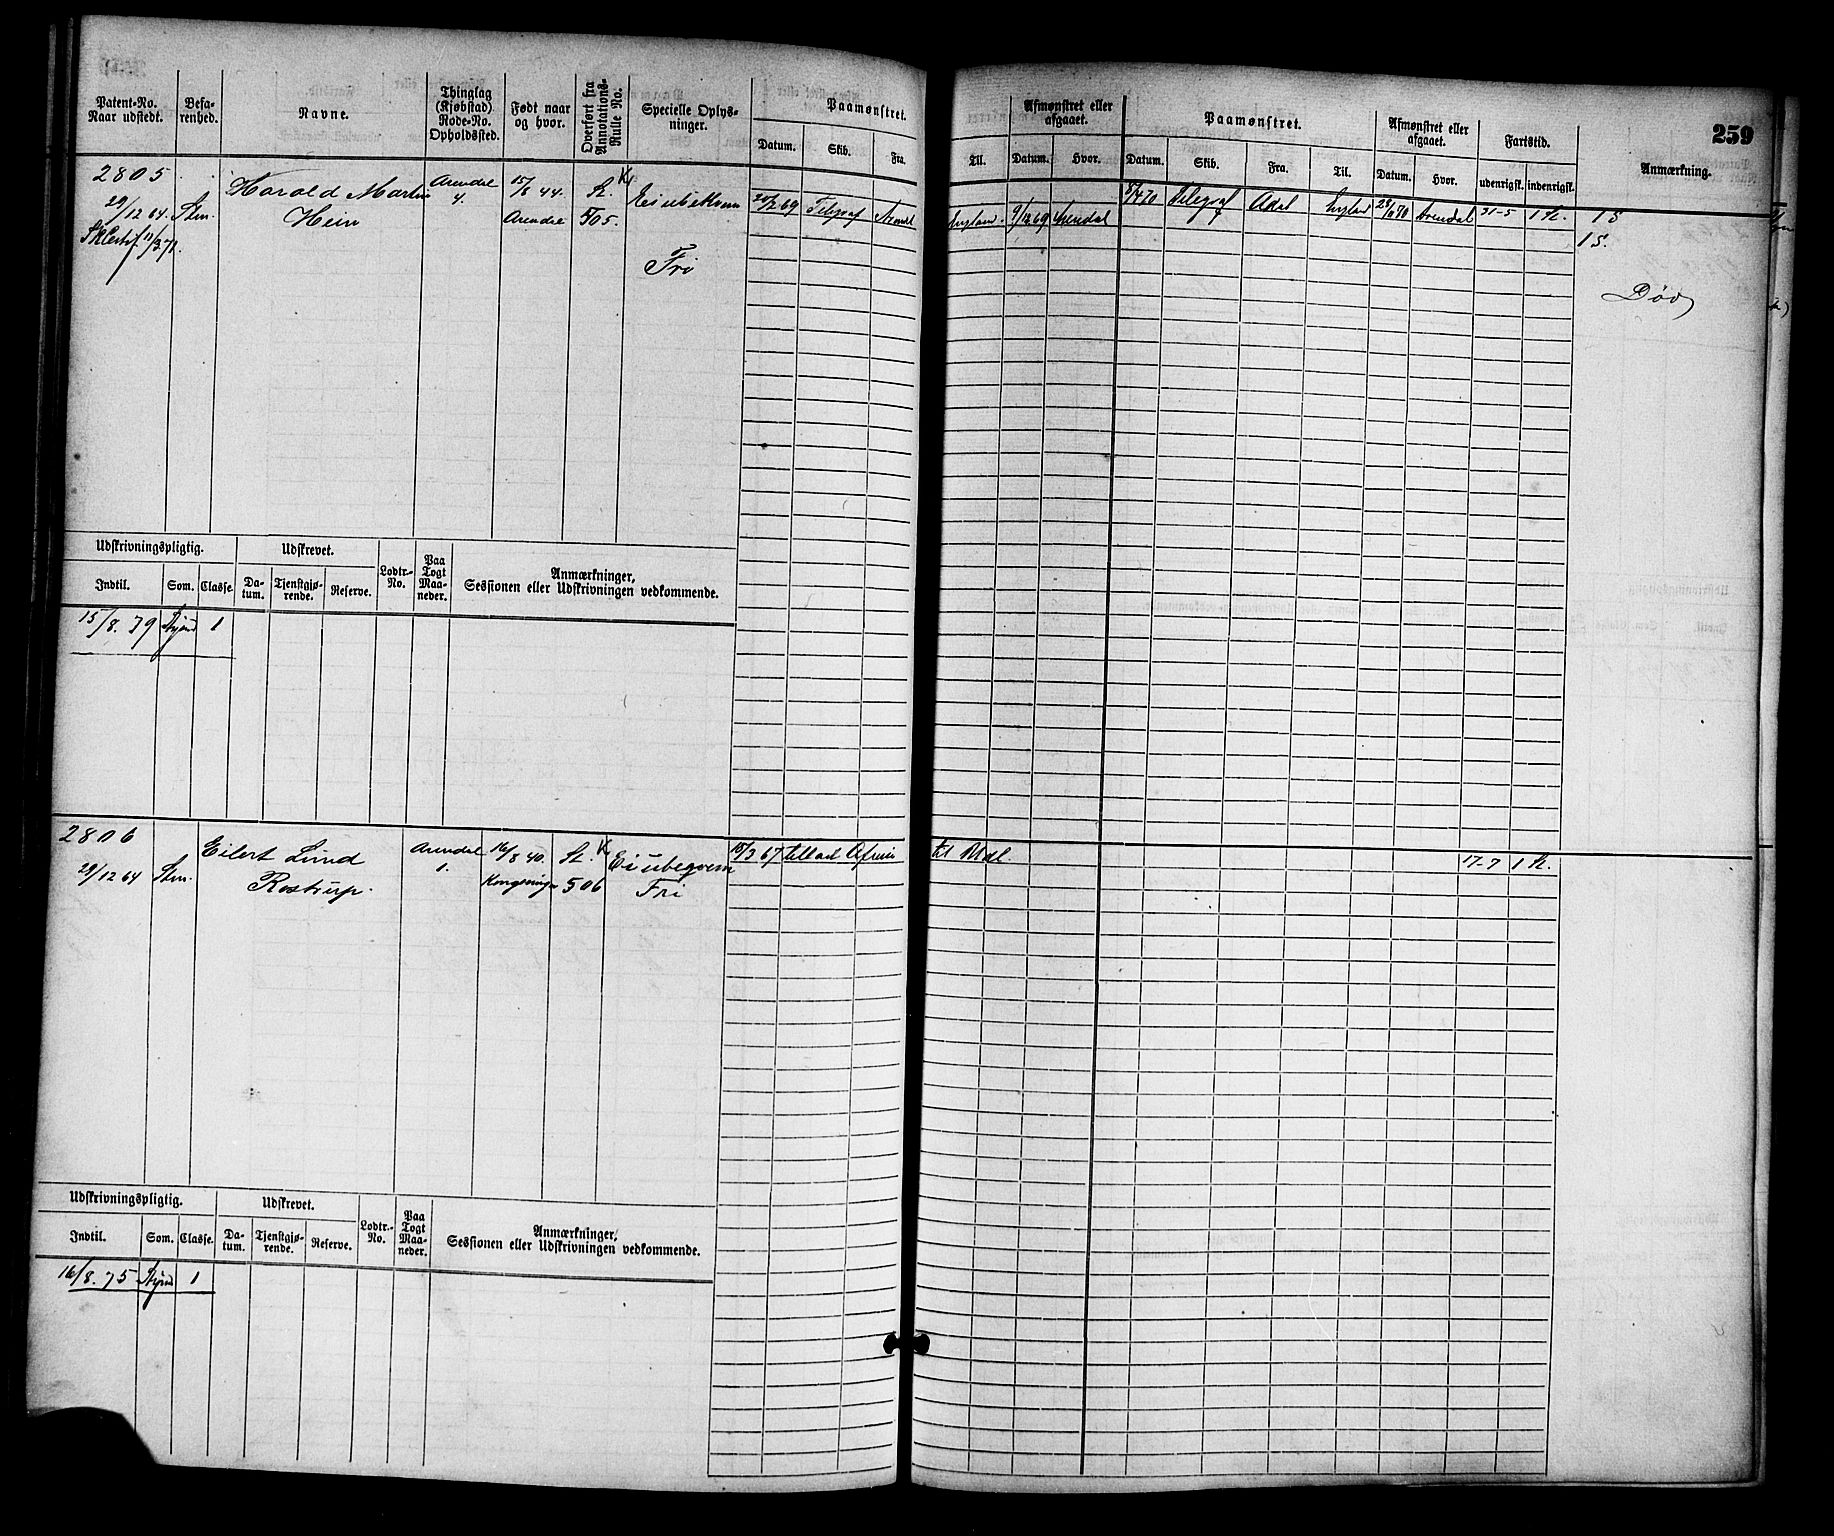 259
Patent-No.
Naar udstedt.
Befa-
renhed.
Navne.
Thinglag
(Kjøbstad)
Rode-No.
Opholdssted.
Født naar
og hvor.
Overført fra
Annotations-
Rulle No.
Specielle Oplys-
ninger.
Paamønstret.
Datum. Skib. Fra.
Til.
Afmønstret eller
afgaaet.
Datum. Hvor.
Paamønstret.
Datum. Skib. Fra. Til.
Afmønstret eller
afgaaet.
Datum. Hvor.
Fartstid.
udenrigsk. indenrigsk.
Anmærkning.
2805
29/12 64. Stm.
Harald Martin
Hein
Arendal
4.
15/8 44.
Arendal
St.
505.
Fri
69 Telegraf Arendal
England. 9/12 69 Arendal
8/4 70 Telegraf Adal England 70 Arendal 31-5 1 St. 15
15.
Død
Udskrivningspligtig. Udskrevet.
Indtil. Som. Classe. Da-
tum. Tjenstgjø-
rende. Reserve. Lodtr.-
No. Paa
Togt
Maa-
neder.
Anmærkninger,
Sessionen eller Udskrivningen vedkommende.
15/8. 79 1
2806
29/12 64 Stm.
Eilert Lund
Rostrup.
Arendal
1.
16/8 40.
St.
506
Ei ubegvem
Fri
15/3 67
17-7 1 St.
Udskrivningspligtig. Udskrevet.
Indtil. Som. Classe. Da-
tum. Tjenstgjø-
rende. Reserve. Lodtr.-
No. Paa
Togt
Maa-
neder.
Anmærkninger,
Sessionen eller Udskrivningen vedkommende.
16/8. 75 1